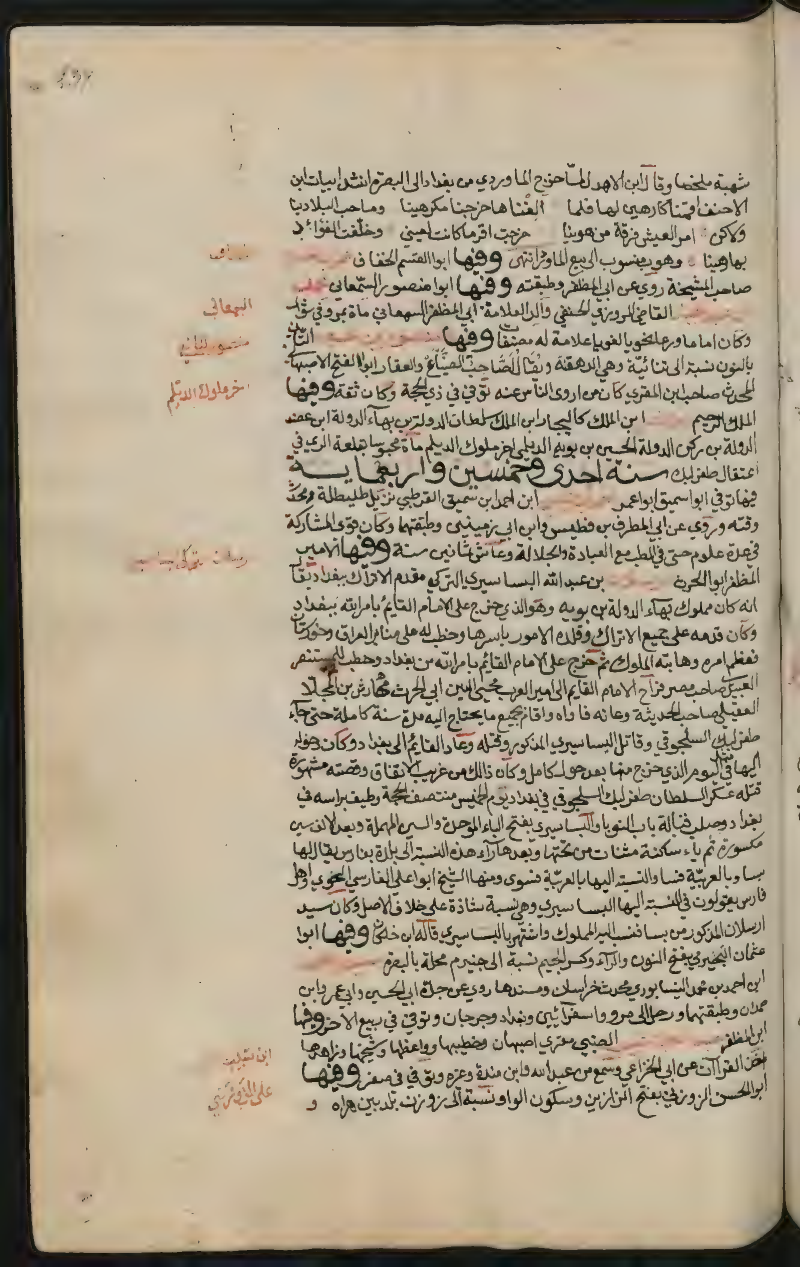 شهبة ملخصا وقال ابن الاهدل لما خرج الماوردي من بغداد الى البصرة انشد ابيات ابن
الاحنف اقمنا كارهين لها فلما الفناها خرجنا مكرهينا وما حب البلاد بنا
ولاكن امر العيش فرقة من هوينا خرجت اقر ما كانت لعيني وخلفت الفؤاد
بها رهينا وهو منسوب الى بيع الماورد انتهى وفيها ابو القسم الخفاف
صاحب المشيخة روى عن ابي المظفر وطبقته وفيها ابو منصور السمعاني
القاضي المروزي الحنفي والد العلامة ابي المظفر السمعاني مات بمرو في شوال
وكان اماما ورعا نحويا لغويا علامة له مصنفات وفيها
بالنون نسبة الى تنائية وهي الدهقنة ويقال لصاحب الضياع والعقار ابو الفتح الاصبهاني
المحدث صاحب ابن المقري كان من اروى الناس عنه توفي في ذي الحجة وكان ثقة وفيها
الملك الرحيم ابن الملك كاليجار ابن الملك سلطان الدولة بن بهاء الدولة ابن عضد
الدولة بن ركن الدولة الحسين بن بويه الديلمي اخر ملوك الديلم مات محبوسا بقلعة الري في
اعتقال طغرلبك سنة احدى وخمسين واربعماية
فيها توفي ابو اسميق ابو عمر ابن احمد ابن سميق القرطبي نزيل طليطلة ومحدث
وقته وروى عن ابي المطرف بن فطيس وابن ابي زمينين وطبقتهما وكان قوي المشاركة
في عدة علوم حتى في الطب مع العبادة والجلالة وعاش ثمانين سنة وفيها الامير
المظفر ابو الحرث بن عبد الله البساسيري التركي مقدم الاتراك ببغداد يقال
انه كان مملوك بهاء الدولة بن بويه وهو الذي خرج على الامام القايم بامر الله ببغداد
وكان قدمه على جميع الاتراك وقلده الامور باسرها وخطب له على منابر العراق وخوزستان
فعظم امره وهابته الملوك ثم خرج على الامام القايم بامر الله من بغداد وخطب للمستنصر
العبيدي صاحب مصر فراح الامام القايم الى امير العرب محيي الدين ابي الحرث مهارش بن المجلا
العقيلي صاحب الحديثة وعانه فاواه واقام بجميع ما يحتاج اليه مدة سنة كاملة حتى جاء
طغرلبك السلجوقي وقاتل البساسيري المذكور وقتله وعاد القايم الى بغداد وكان دخوله
اليها في مثل اليوم الذي خرج منها بعد حول كامل وكان ذالك من غريب الاتفاق وقصته مشهورة
قتله عسكر السلطان طغرلبك السلجوقي في بغداد يوم الخميس منتصف الحجة وطيف براسه في
بغداد وصلب قبالة باب النوبا والبساسيري بفتح الباء الموحدة والسين المهملة وبعد الالف سين
مكسورة ثم ياء ساكنة مثناة من تحتها وبعدها راء هذه النسبة الى بلدة بفارس يقال لها
بسا وبالعربية فسا والنسبة اليها بالعربية فسوي ومنها الشيخ ابو علي الفارسي النحوي واهل
فارس يقولون في النسبة اليها البساسيري وهي نسبة شاذة على خلاف الاصل وكان سيد
ارسلان المذكور من بسا فنسب اليه المملوك واشتهر بالبساسيري قاله ابن خلكان وفيها ابو
عثمان النجيرمي بفتح النون والراء وكسر الجيم نسبة الى نجيرم محلة بالبصرة
ابن احمد بن محمد النيسابوري محدث خراسان ومسندها روى عن جده ابي الحسين وابي عمر وابن
حمدان وطبقتهما ورحل الى مرو واسفرائين وبغداد وجرجان وتوفي في ربيع الاخر وفيها
ابن المظفر الضبي مقري اصبهان وخطيبها وواعظها وشيخها وزاهدها
القراات عن ابي الخزاعي وسمع من عبد الله وابن مندة وغيره وتوفي في صفر وفيها
ابو الحسن الزوزني بفتح الزايين وسكون الواو نسبة الى زوزن بلد بين هراه و
السمعاني
منصور التاني
اخر ملوك الديلم
علي الزوزني